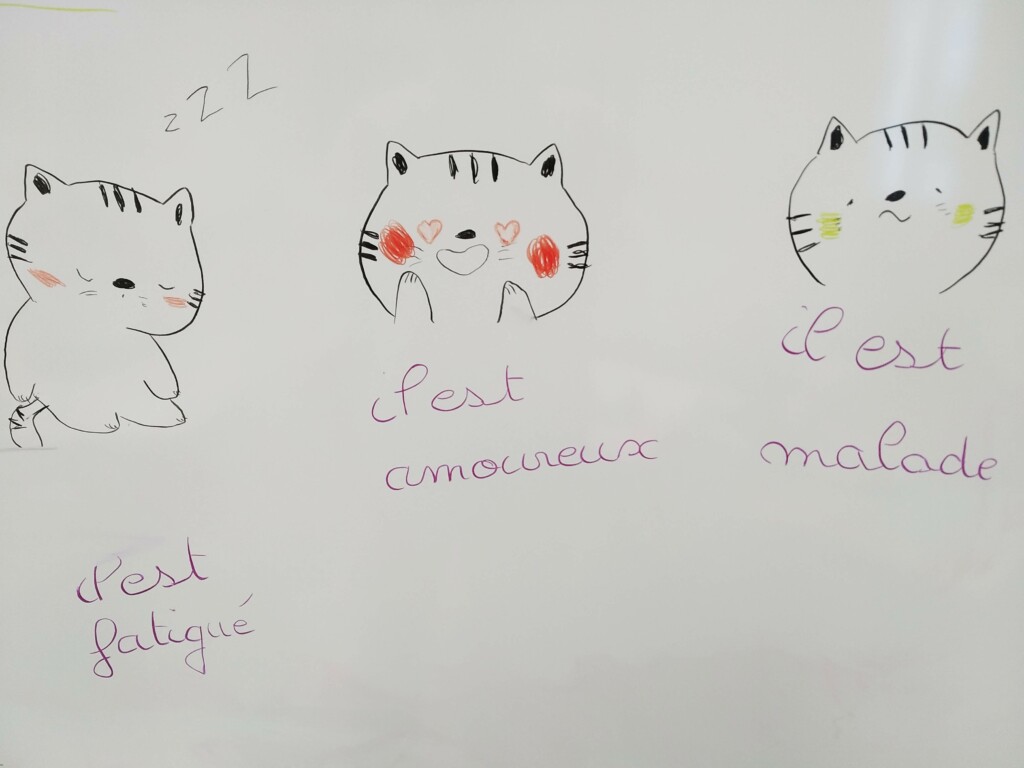 z z z
il est
amoureux
il est
malade
il est
fatigué